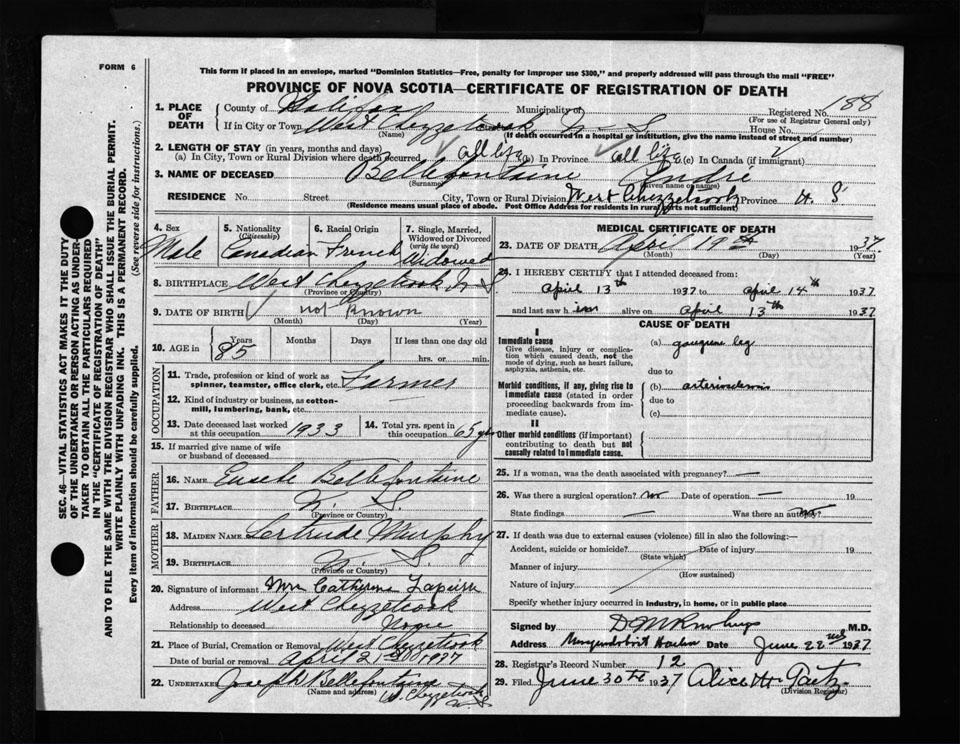 FORM 6
This form if placed in an envelope, marked "Dominion Statistics—Free, penalty for improper use $300," and properly addressed will pass through the mail "FREE"
PROVINCE OF NOVA SCOTIA—CERTIFICATE OF REGISTRATION OF DEATH
SEC. 46—VITAL STATISTICS ACT MAKES IT THE DUTY
OF THE UNDERTAKER OR PERSON ACTING AS UNDER-
TAKER TO OBTAIN ALL THE PARTICULARS REQUIRED
IN THE "CERTIFICATE OF REGISTRATION OF DEATH"
AND TO FILE THE SAME WITH THE DIVISION REGISTRAR WHO SHALL ISSUE THE BURIAL PERMIT.
WRITE PLAINLY WITH UNFADING INK. THIS IS A PERMANENT RECORD.
Every item of information should be carefully supplied. (See reverse side for instructions.)
1. PLACE OF DEATH County of Halifax Municipality of Registered No. 188
(For use of Registrar General only)
If in City or Town West Chezzetcook N. S. House No.
(Name) (If death occurred in a hospital or institution, give the name instead of street and number)
2. LENGTH OF STAY (in years, months and days)
(a) In City, Town or Rural Division where death occurred All life (b) In Province All life (c) In Canada (if immigrant)
3. NAME OF DECEASED Bellefontaine Andre
(Surname) (Given name or names)
RESIDENCE No. Street City, Town or Rural Division West Chezzetcook Province N. S.
(Residence means usual place of abode. Post Office Address for residents in rural parts not sufficient)
4. Sex Male
5. Nationality (Citizenship) Canadian
6. Racial Origin French
7. Single, Married, Widowed or Divorced (write the word) Widowed
8. BIRTHPLACE West Chezzetcook N. S.
(Province or Country)
9. DATE OF BIRTH not known
(Month) (Day) (Year)
10. AGE in 85 Years Months Days If less than one day old
hrs. or min.
OCCUPATION
11. Trade, profession or kind of work as
spinner, teamster, office clerk, etc. Farmer
12. Kind of industry or business, as cotton-
mill, lumbering, bank, etc.
13. Date deceased last worked
at this occupation 1933
14. Total yrs. spent in
this occupation 65 yrs
15. If married give name of wife
or husband of deceased
FATHER
16. NAME Bellefontaine
17. BIRTHPLACE N. S.
(Province or Country)
MOTHER
18. MAIDEN NAME Gertrude Murphy
19. BIRTHPLACE N. S.
(Province or Country)
20. Signature of informant Mrs Catherine Lapierre
Address West Chezzetcook
Relationship to deceased
21. Place of Burial, Cremation or Removal West Chezzetcook
Date of burial or removal April 21st 1937
22. UNDERTAKER Joseph Bellefontaine
(Name and address) W. Chezzetcook
N. S.
MEDICAL CERTIFICATE OF DEATH
23. DATE OF DEATH April 19th 1937
(Month) (Day) (Year)
24. I HEREBY CERTIFY that I attended deceased from:
April 13th 1937 to April 14th 1937
and last saw him alive on April 13th 1937
CAUSE OF DEATH
I
Immediate cause
Give disease, injury or compli-
cation which caused death, not the
mode of dying, such as heart failure,
asphyxia, asthenia, etc.
(a) gangrene leg
due to
Morbid conditions, if any, giving rise to
immediate cause (stated in order
proceeding backwards from im-
mediate cause).
(b) arteriosclerosis
due to
(c)
II
Other morbid conditions (if important)
contributing to death but not
causally related to immediate cause.
25. If a woman, was the death associated with pregnancy? —
26. Was there a surgical operation? no Date of operation — 19
State findings — Was there an autopsy? no
27. If death was due to external causes (violence) fill in also the following:—
Accident, suicide or homicide? Date of injury 19
(State which)
Manner of injury
(How sustained)
Nature of injury
Specify whether injury occurred in industry, in home, or in public place
Signed by D M Rowlings M.D.
Address Musquodoboit Harbor Date June 22nd 1937
28. Registrar's Record Number 12
29. Filed June 30th 1937 Alice M. Gaetz
(Division Registrar)